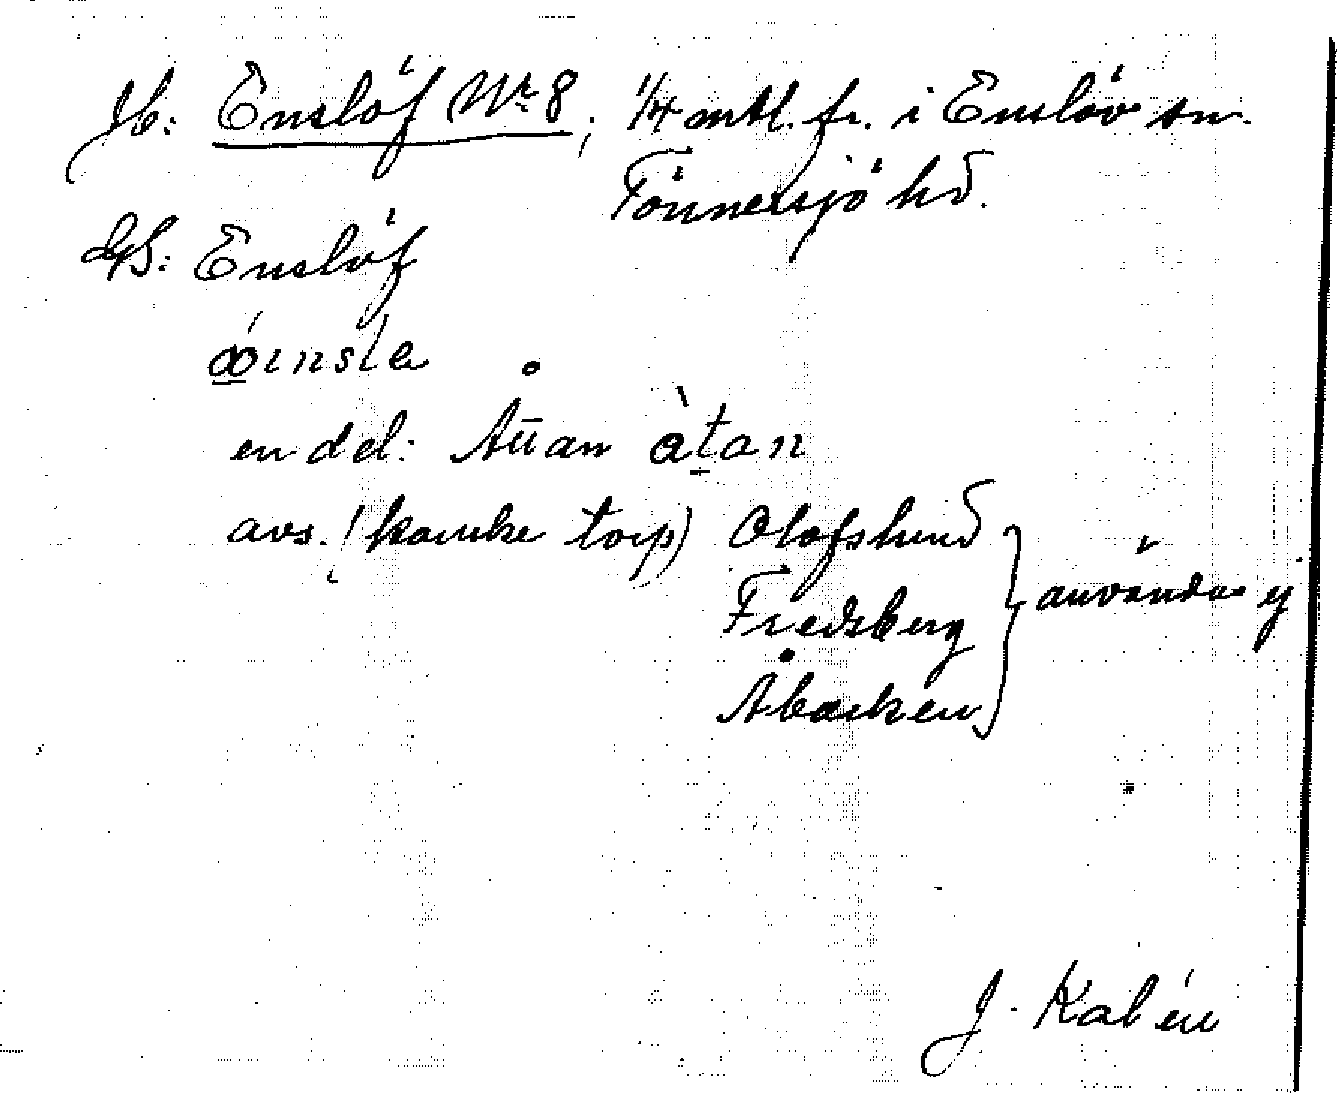 Jb: Enslöf Nr 8; 1/4 mtl. fr. i Enslöv sn.
Tönnersjö hd.
GS: Enslöf
en del: Åttan àtan
avs. (kanske torp) Olofslund
Fredsberg
Åbacken
användas ej
J. Kalén